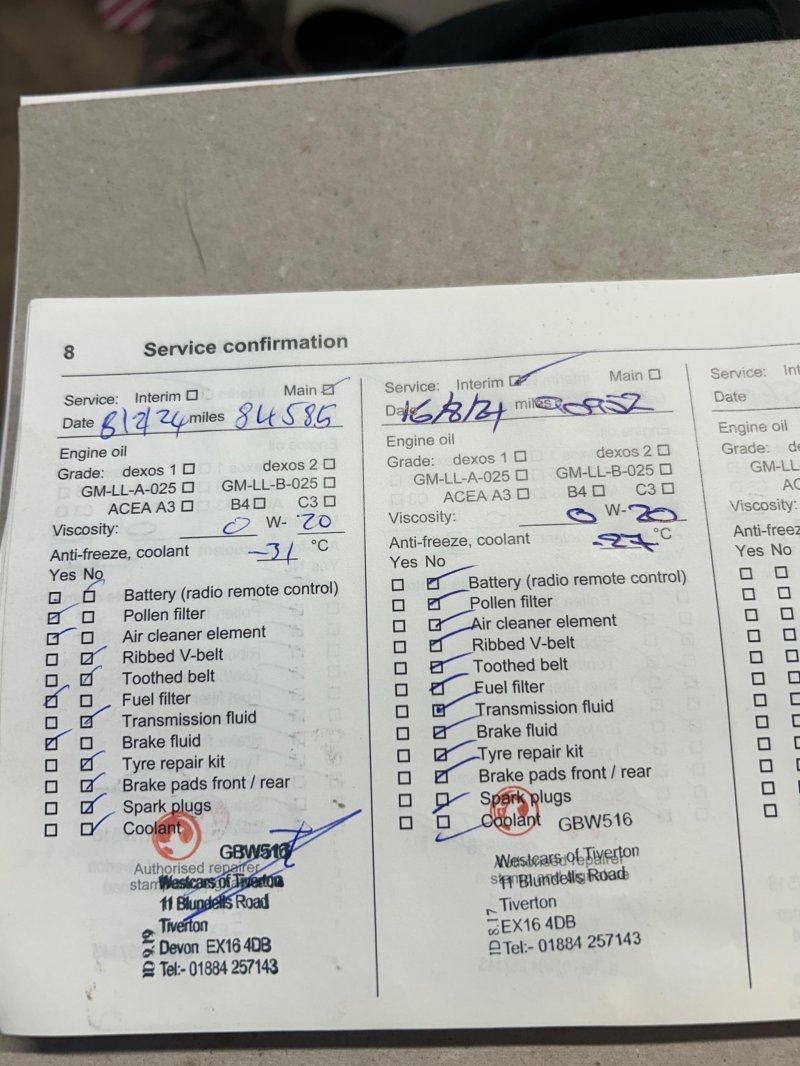 8 Service confirmation
Service: Interim Main
Date 8/2/24 miles 84585
Engine oil
Grade: dexos 1 dexos 2
GM-LL-A-025 GM-LL-B-025
ACEA A3 B4 C3
Viscosity: 0 W- 20
Anti-freeze, coolant -31 °C
Yes No
Battery (radio remote control)
Pollen filter
Air cleaner element
Ribbed V-belt
Toothed belt
Fuel filter
Transmission fluid
Brake fluid
Tyre repair kit
Brake pads front / rear
Spark plugs
Coolant
GBW516
Authorised repairer
Westcars of Tiverton
11 Blundells Road
Tiverton
Devon EX16 4DB
Tel:- 01884 257143
ID 9.19
Service: Interim Main
Date 16/8/24 miles
Engine oil
Grade: dexos 1 dexos 2
GM-LL-A-025 GM-LL-B-025
ACEA A3 B4 C3
Viscosity: 0 W- 20
Anti-freeze, coolant -27 °C
Yes No
Battery (radio remote control)
Pollen filter
Air cleaner element
Ribbed V-belt
Toothed belt
Fuel filter
Transmission fluid
Brake fluid
Tyre repair kit
Brake pads front / rear
Spark plugs
Coolant
GBW516
Westcars of Tiverton
11 Blundells Road
Tiverton
EX16 4DB
Tel:- 01884 257143
ID 8.17
Service: Int
Date
Engine oil
Grade: de
GM-LL
AC
Viscosity:
Anti-freez
Yes No